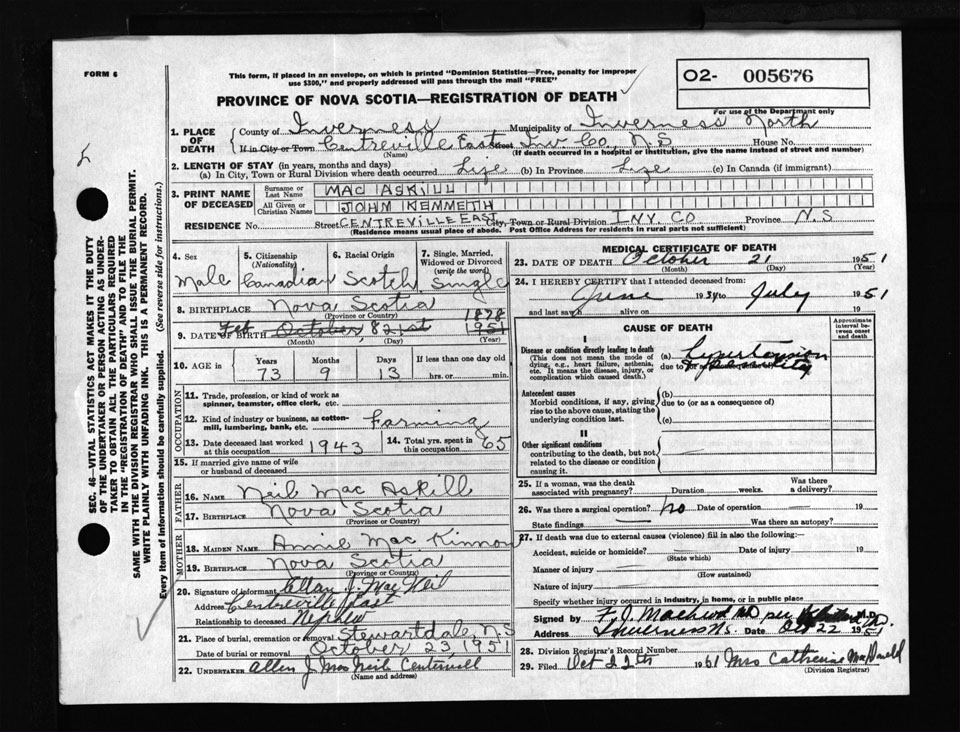 FORM 6
This form, if placed in an envelope, on which is printed "Dominion Statistics—Free, penalty for improper
use $300," and properly addressed will pass through the mail "FREE"
O2- 005676
For use of the Department only
PROVINCE OF NOVA SCOTIA—REGISTRATION OF DEATH
SEC. 46—VITAL STATISTICS ACT MAKES IT THE DUTY
OF THE UNDERTAKER OR PERSON ACTING AS UNDER-
TAKER TO OBTAIN ALL THE PARTICULARS REQUIRED
IN THE "REGISTRATION OF DEATH" AND TO FILE THE
SAME WITH THE DIVISION REGISTRAR WHO SHALL ISSUE THE BURIAL PERMIT.
WRITE PLAINLY WITH UNFADING INK. THIS IS A PERMANENT RECORD.
Every item of information should be carefully supplied. (See reverse side for instructions.)
1. PLACE OF DEATH County of Inverness Municipality of Inverness North
If in City or Town Centreville East Street Inv. Co, N.S House No.
(Name) (If death occurred in a hospital or institution, give the name instead of street and number)
2. LENGTH OF STAY (in years, months and days)
(a) In City, Town or Rural Division where death occurred Life (b) In Province Life (c) In Canada (if immigrant)
3. PRINT NAME OF DECEASED Surname or Last Name MAC ASKILL
All Given or Christian Names JOHN KENNETH
RESIDENCE No. Street CENTREVILLE EAST City, Town or Rural Division INV. CO Province N.S
(Residence means usual place of abode. Post Office Address for residents in rural parts not sufficient)
4. Sex Male
5. Citizenship (Nationality) Canadian
6. Racial Origin Scotch
7. Single, Married, Widowed or Divorced (write the word) Single
8. BIRTHPLACE Nova Scotia
(Province or Country)
9. DATE OF BIRTH Feb October 8 21st 1878 1951
(Month) (Day) (Year)
10. AGE in Years 73 Months 9 Days 13 If less than one day old hrs. or min.
OCCUPATION
11. Trade, profession, or kind of work as
spinner, teamster, office clerk, etc.
12. Kind of industry or business, as cotton-
mill, lumbering, bank, etc. Farming
13. Date deceased last worked at this occupation 1943 14. Total yrs. spent in this occupation 65
15. If married give name of wife
or husband of deceased
FATHER
16. NAME Neil Mac Askill
17. BIRTHPLACE Nova Scotia
(Province or Country)
MOTHER
18. MAIDEN NAME Annie Mac Kinnon
19. BIRTHPLACE Nova Scotia
(Province or Country)
20. Signature of informant Allan J. MacNeil
Address Centreville East
Relationship to deceased Nephew
21. Place of burial, cremation or removal Stewartdale, N.S
Date of burial or removal October 23, 1951
22. UNDERTAKER Allen J. Mac Neil Centervill
(Name and address)
MEDICAL CERTIFICATE OF DEATH
23. DATE OF DEATH October 21 1951
(Month) (Day) (Year)
24. I HEREBY CERTIFY that I attended deceased from:
June 19 to July 1951
and last saw h alive on 19
CAUSE OF DEATH
Approximate interval between onset and death
I
Disease or condition directly leading to death
(This does not mean the mode of
dying, e.g., heart failure, asthenia,
etc. It means the disease, injury, or
complication which caused death.)
(a) Hypertension
due to (or as a consequence of)
Antecedent causes
Morbid conditions, if any, giving
rise to the above cause, stating the
underlying condition last.
(b)
due to (or as a consequence of)
(c)
II
Other significant conditions
contributing to the death, but not
related to the disease or condition
causing it.
25. If a woman, was the death
associated with pregnancy? Duration weeks. Was there a delivery?
26. Was there a surgical operation? No Date of operation — 19
State findings — Was there an autopsy?
27. If death was due to external causes (violence) fill in also the following:—
Accident, suicide or homicide? — Date of injury 19
(State which)
Manner of injury —
(How sustained)
Nature of injury —
Specify whether injury occurred in Industry, in home, or in public place
Signed by M.D.
Address Inverness N.S. Date Oct 22 1951
28. Division Registrar's Record Number
29. Filed Oct 22th 1951 Mrs Catherine MacDonald
(Division Registrar)